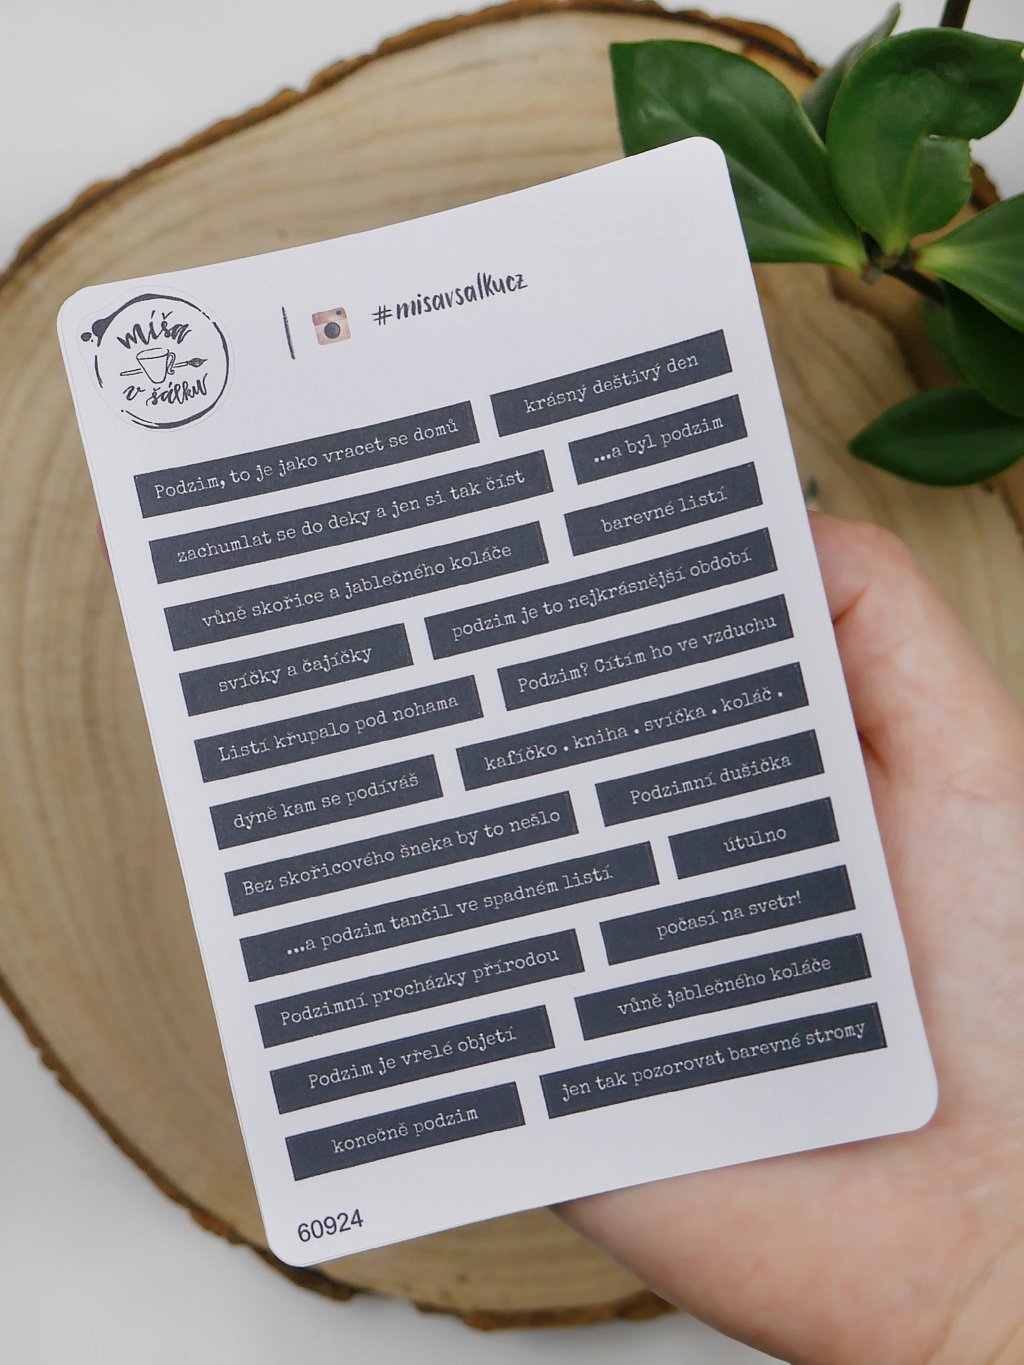 míša
v šálku
#misavsalkucz
Podzim, to je jako vracet se domů
krásný deštivý den
zachumlat se do deky a jen si tak číst
...a byl podzim
vůně skořice a jablečného koláče
barevné listí
svíčky a čajíčky
podzim je to nejkrásnější období
Listí křupalo pod nohama
Podzim? Cítím ho ve vzduchu
dýně kam se podíváš
kafíčko . kniha . svíčka . koláč .
Bez skořicového šneka by to nešlo
Podzimní dušička
...a podzim tančil ve spadném listí
útulno
Podzimní procházky přírodou
počasí na svetr!
Podzim je vřelé objetí
vůně jablečného koláče
konečně podzim
jen tak pozorovat barevné stromy
60924